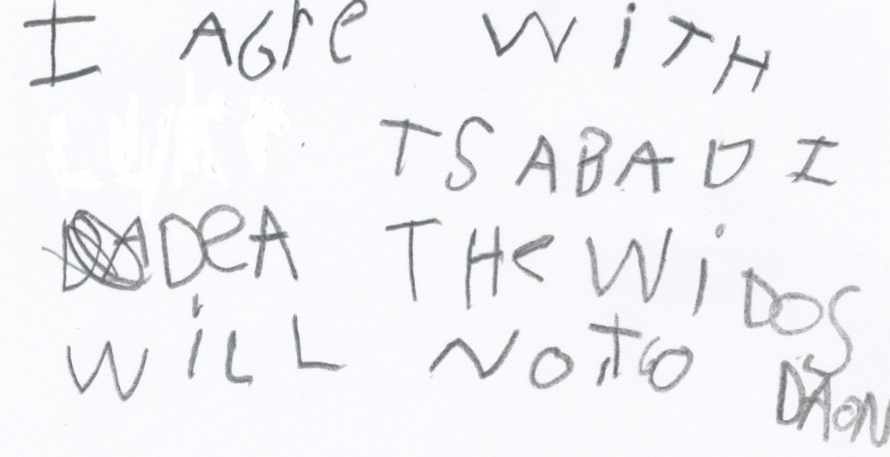 I AGre WiTH
TSABAD I
DeA THe WiDOS
WiLL NOT GO DAON